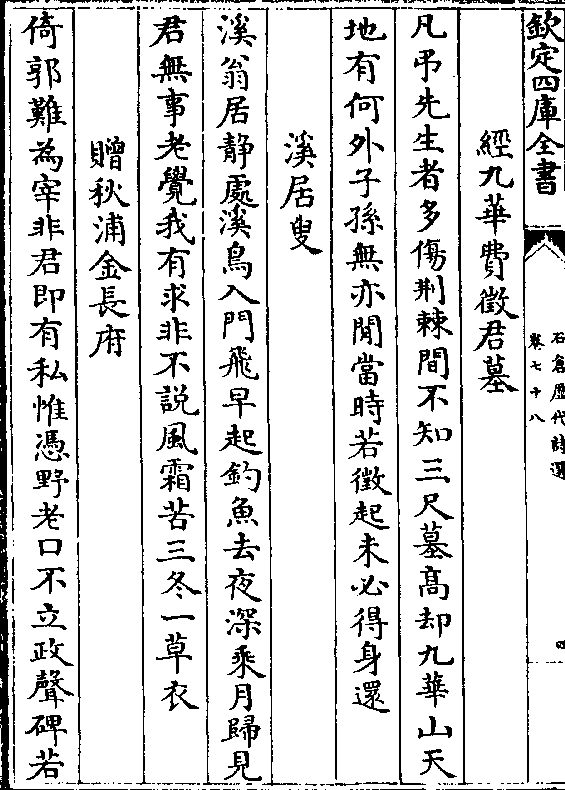 欽定四庫全書
石倉歷代詩選
卷七十八
四
經九華費徵君墓
凡弔先生者多傷荆棘間不知三尺墓髙却九華山天
地有何外子孫無亦閒當時若徵起未必得身還
溪居叟
溪翁居静處溪鳥入門飛早起釣魚去夜深乘月歸見
君無事老覺我有求非不説風霜苦三冬一草衣
贈秋浦金長府
倚郭難為宰非君即有私惟憑野老口不立政聲碑若